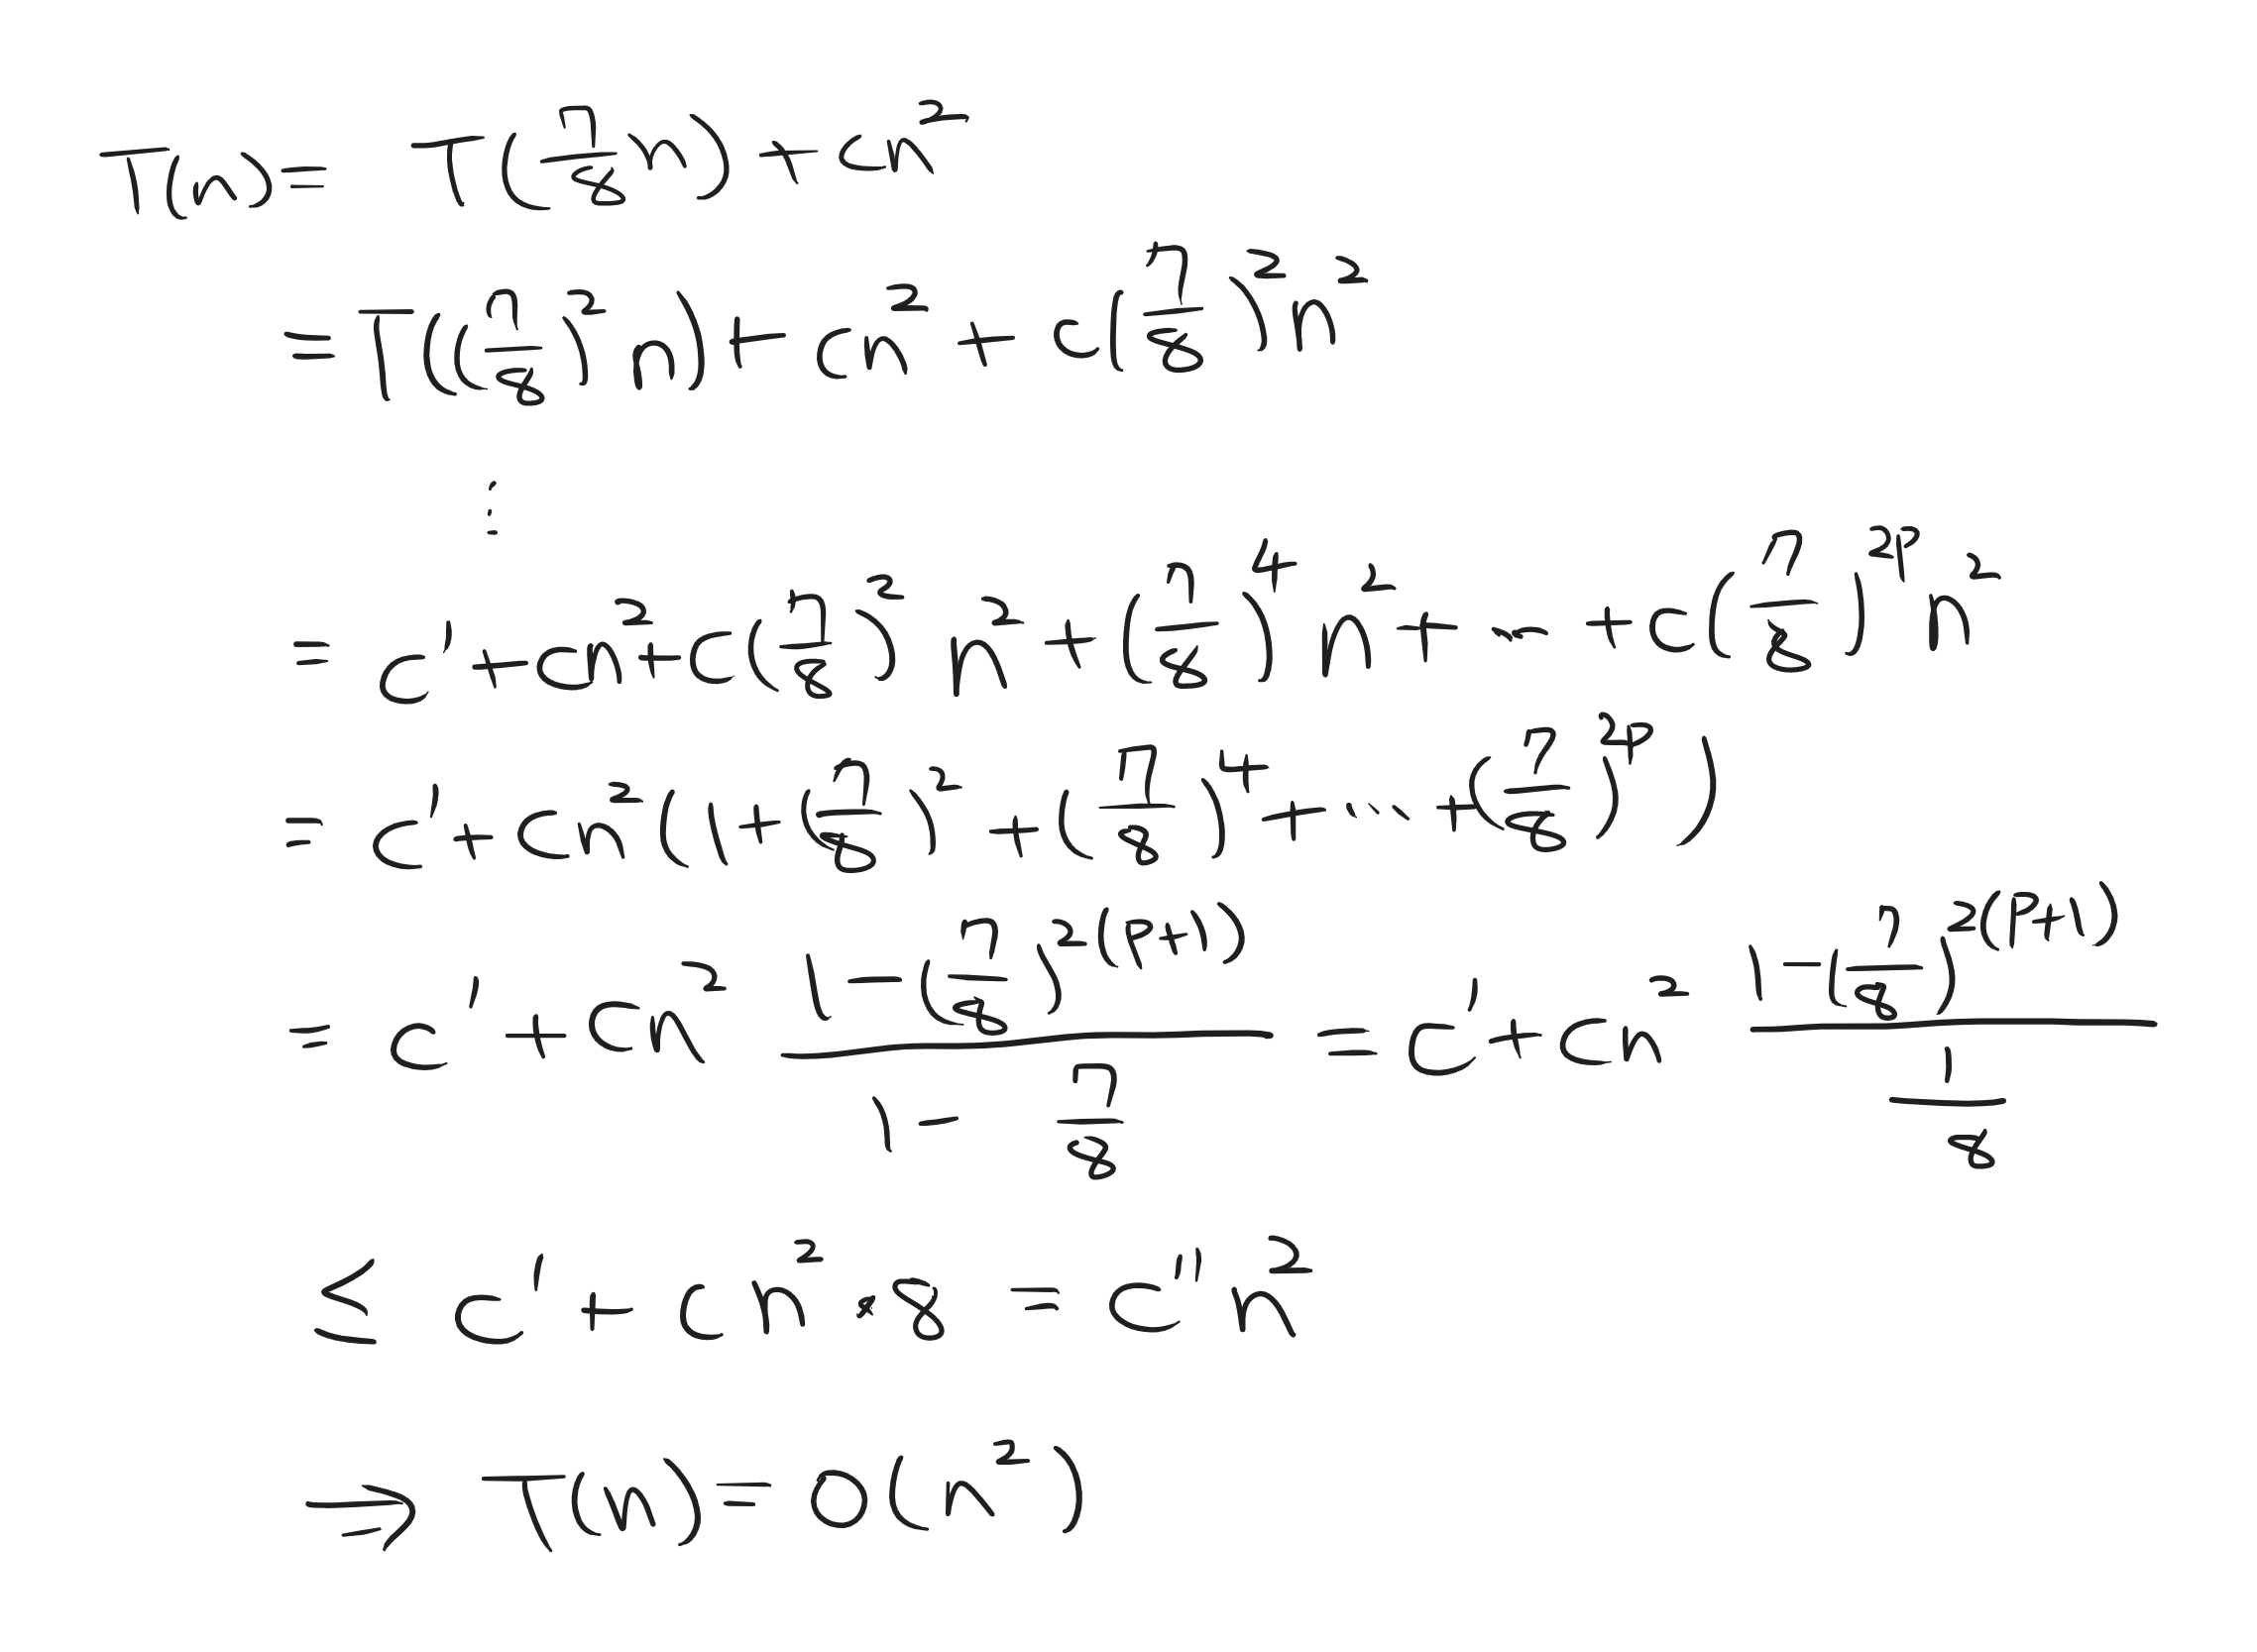 T(n) = T(7/8 n) + cn²
= T((7/8)² n) + cn² + c(7/8)² n²
⋮
= c' + cn² + c(7/8)² n² + (7/8)⁴ n² + ... + c(7/8)^(2p) n²
= c' + cn² (1 + (7/8)² + (7/8)⁴ + ... + (7/8)^(2p))
= c' + cn² (1 - (7/8)^(2(p+1)))/(1 - 7/8) = c' + cn² (1 - (7/8)^(2(p+1)))/(1/8)
≤ c' + cn² · 8 = c'' n²
⇒ T(n) = O(n²)